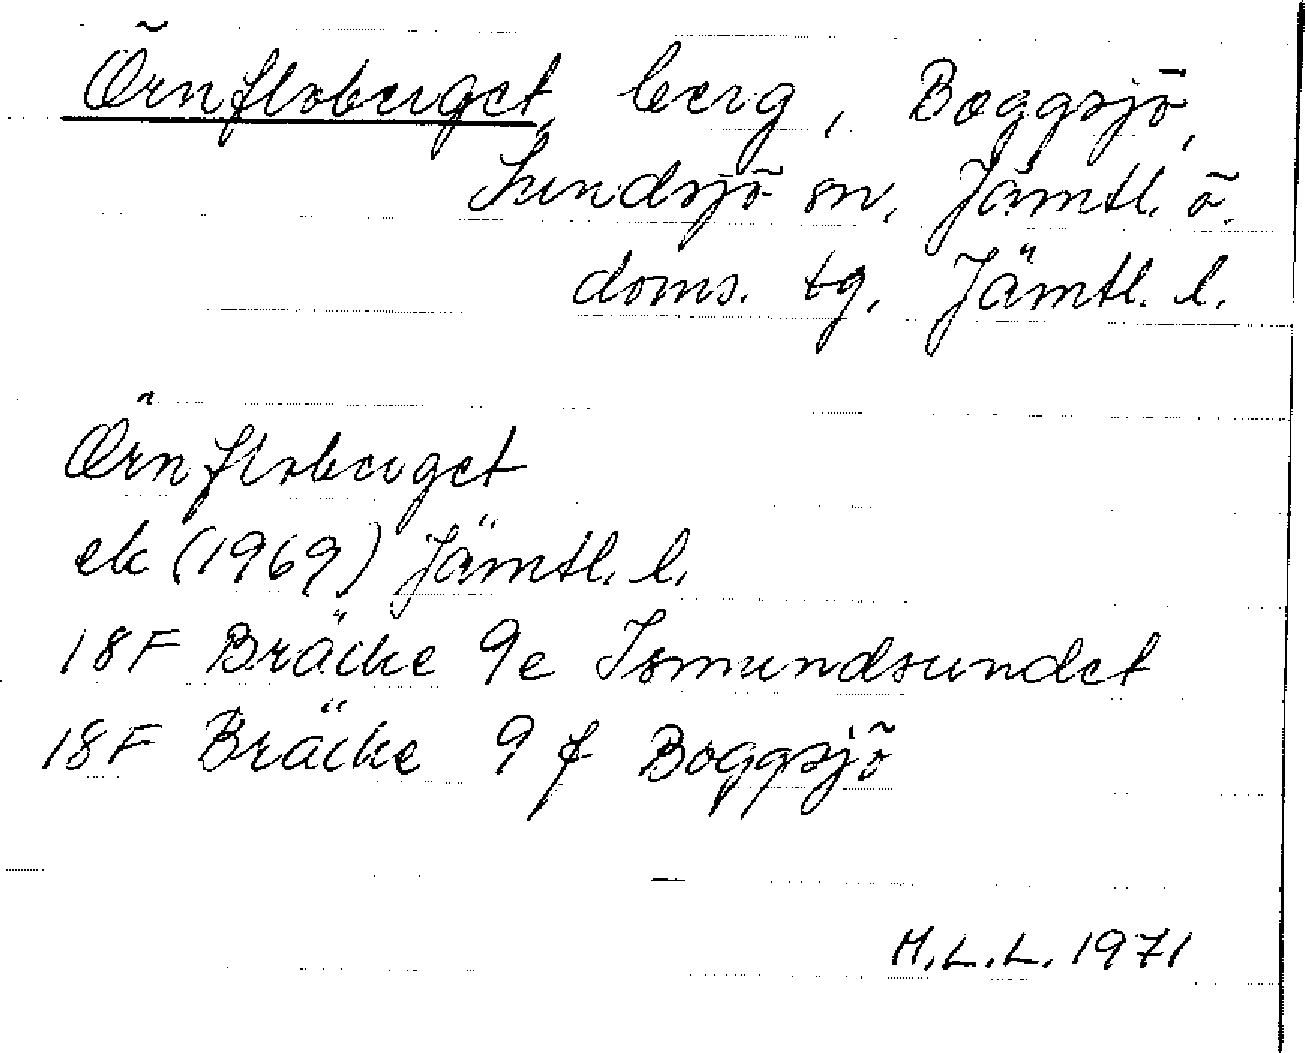 Örnfloberget, berg, Boggsjö,
Sundsjö sn, Jämtl. ö.
doms. tg, Jämtl. l.
Örnfloberget
ek (1969) Jämtl. l.
18F Bräcke 9e Ismundsundet
18F Bräcke 9f Boggsjö
M.L.L. 1971